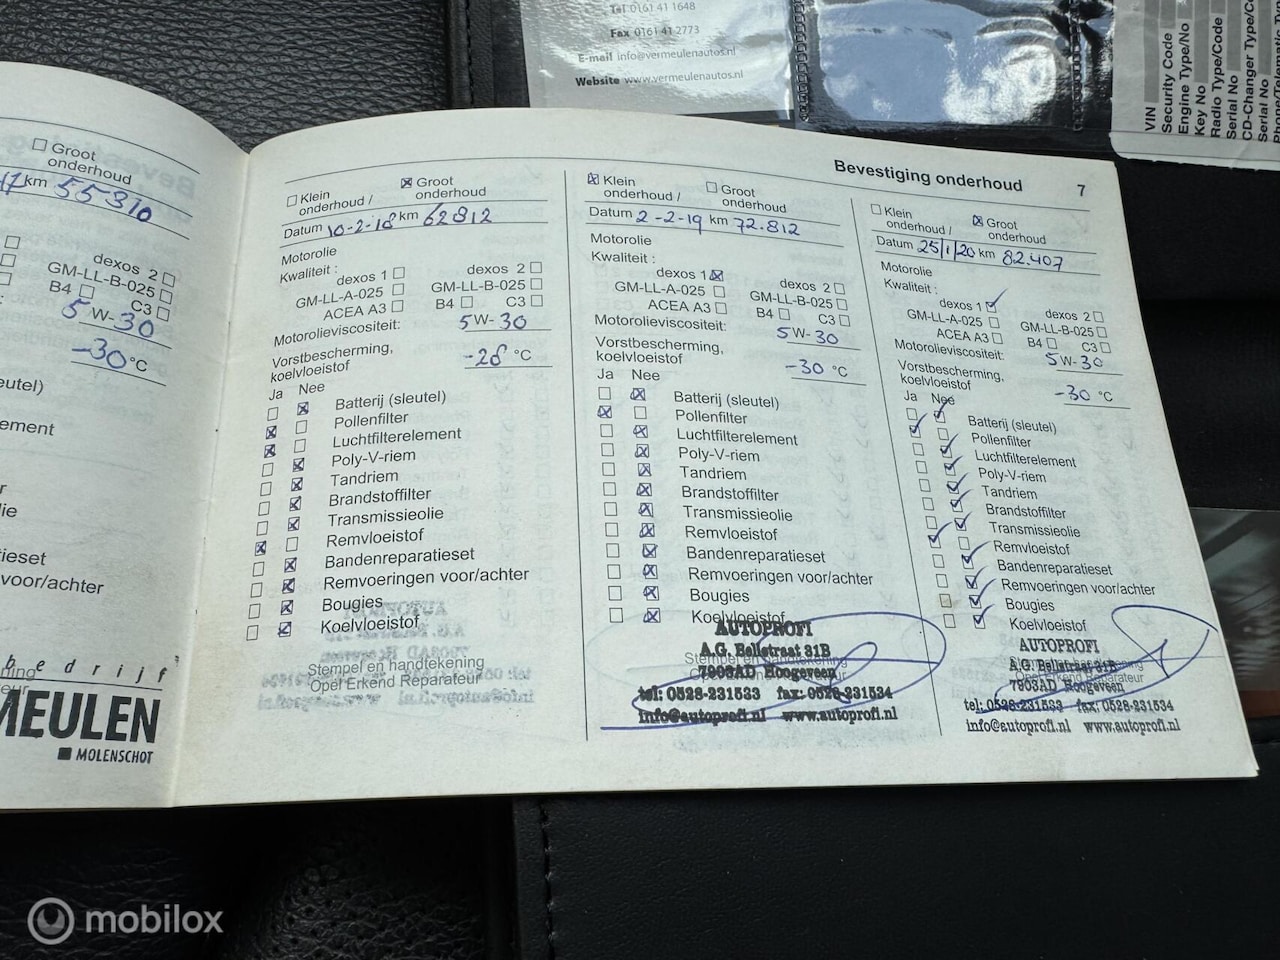 Tel 0161 41 1648
Fax 0161 41 2773
E-mail info@vermeulenautos.nl
Website www.vermeulenautos.nl
VIN
Security Code
Engine Type/No
Key No
Radio Type/Code
Serial No
CD-Changer Type/Co
Serial No
Groot
onderhoud
17 km 55310
dexos 2
GM-LL-B-025
B4 C3
5 W-30
-30 °C
sleutel)
ement
lie
atieset
voor/achter
bedrijf
MEULEN
MOLENSCHOT
Bevestiging onderhoud 7
Klein
onderhoud /
Groot
onderhoud
Datum 10-2-18 km 62812
Motorolie
Kwaliteit :
dexos 1 dexos 2
GM-LL-A-025 GM-LL-B-025
ACEA A3 B4 C3
Motorolieviscositeit: 5 W-30
Vorstbescherming,
koelvloeistof -28 °C
Ja Nee
Batterij (sleutel)
Pollenfilter
Luchtfilterelement
Poly-V-riem
Tandriem
Brandstoffilter
Transmissieolie
Remvloeistof
Bandenreparatieset
Remvoeringen voor/achter
Bougies
Koelvloeistof
Stempel en handtekening
Opel Erkend Reparateur
Klein
onderhoud /
Groot
onderhoud
Datum 2-2-19 km 72.812
Motorolie
Kwaliteit :
dexos 1 dexos 2
GM-LL-A-025 GM-LL-B-025
ACEA A3 B4 C3
Motorolieviscositeit: 5 W-30
Vorstbescherming,
koelvloeistof -30 °C
Ja Nee
Batterij (sleutel)
Pollenfilter
Luchtfilterelement
Poly-V-riem
Tandriem
Brandstoffilter
Transmissieolie
Remvloeistof
Bandenreparatieset
Remvoeringen voor/achter
Bougies
Koelvloeistof
Stempel en handtekening
AUTOPROFI
A.G. Bellstraat 31B
7903AD Hoogeveen
tel: 0528-231533 fax: 0528-231534
info@autoprofi.nl www.autoprofi.nl
Klein
onderhoud /
Groot
onderhoud
Datum 25/1/20 km 82.407
Motorolie
Kwaliteit :
dexos 1 dexos 2
GM-LL-A-025 GM-LL-B-025
ACEA A3 B4 C3
Motorolieviscositeit: 5 W-30
Vorstbescherming,
koelvloeistof -30 °C
Ja Nee
Batterij (sleutel)
Pollenfilter
Luchtfilterelement
Poly-V-riem
Tandriem
Brandstoffilter
Transmissieolie
Remvloeistof
Bandenreparatieset
Remvoeringen voor/achter
Bougies
Koelvloeistof
AUTOPROFI
A.G. Bellstraat 31B
7903AD Hoogeveen
tel: 0528-231533 fax: 0528-231534
info@autoprofi.nl www.autoprofi.nl
mobilox